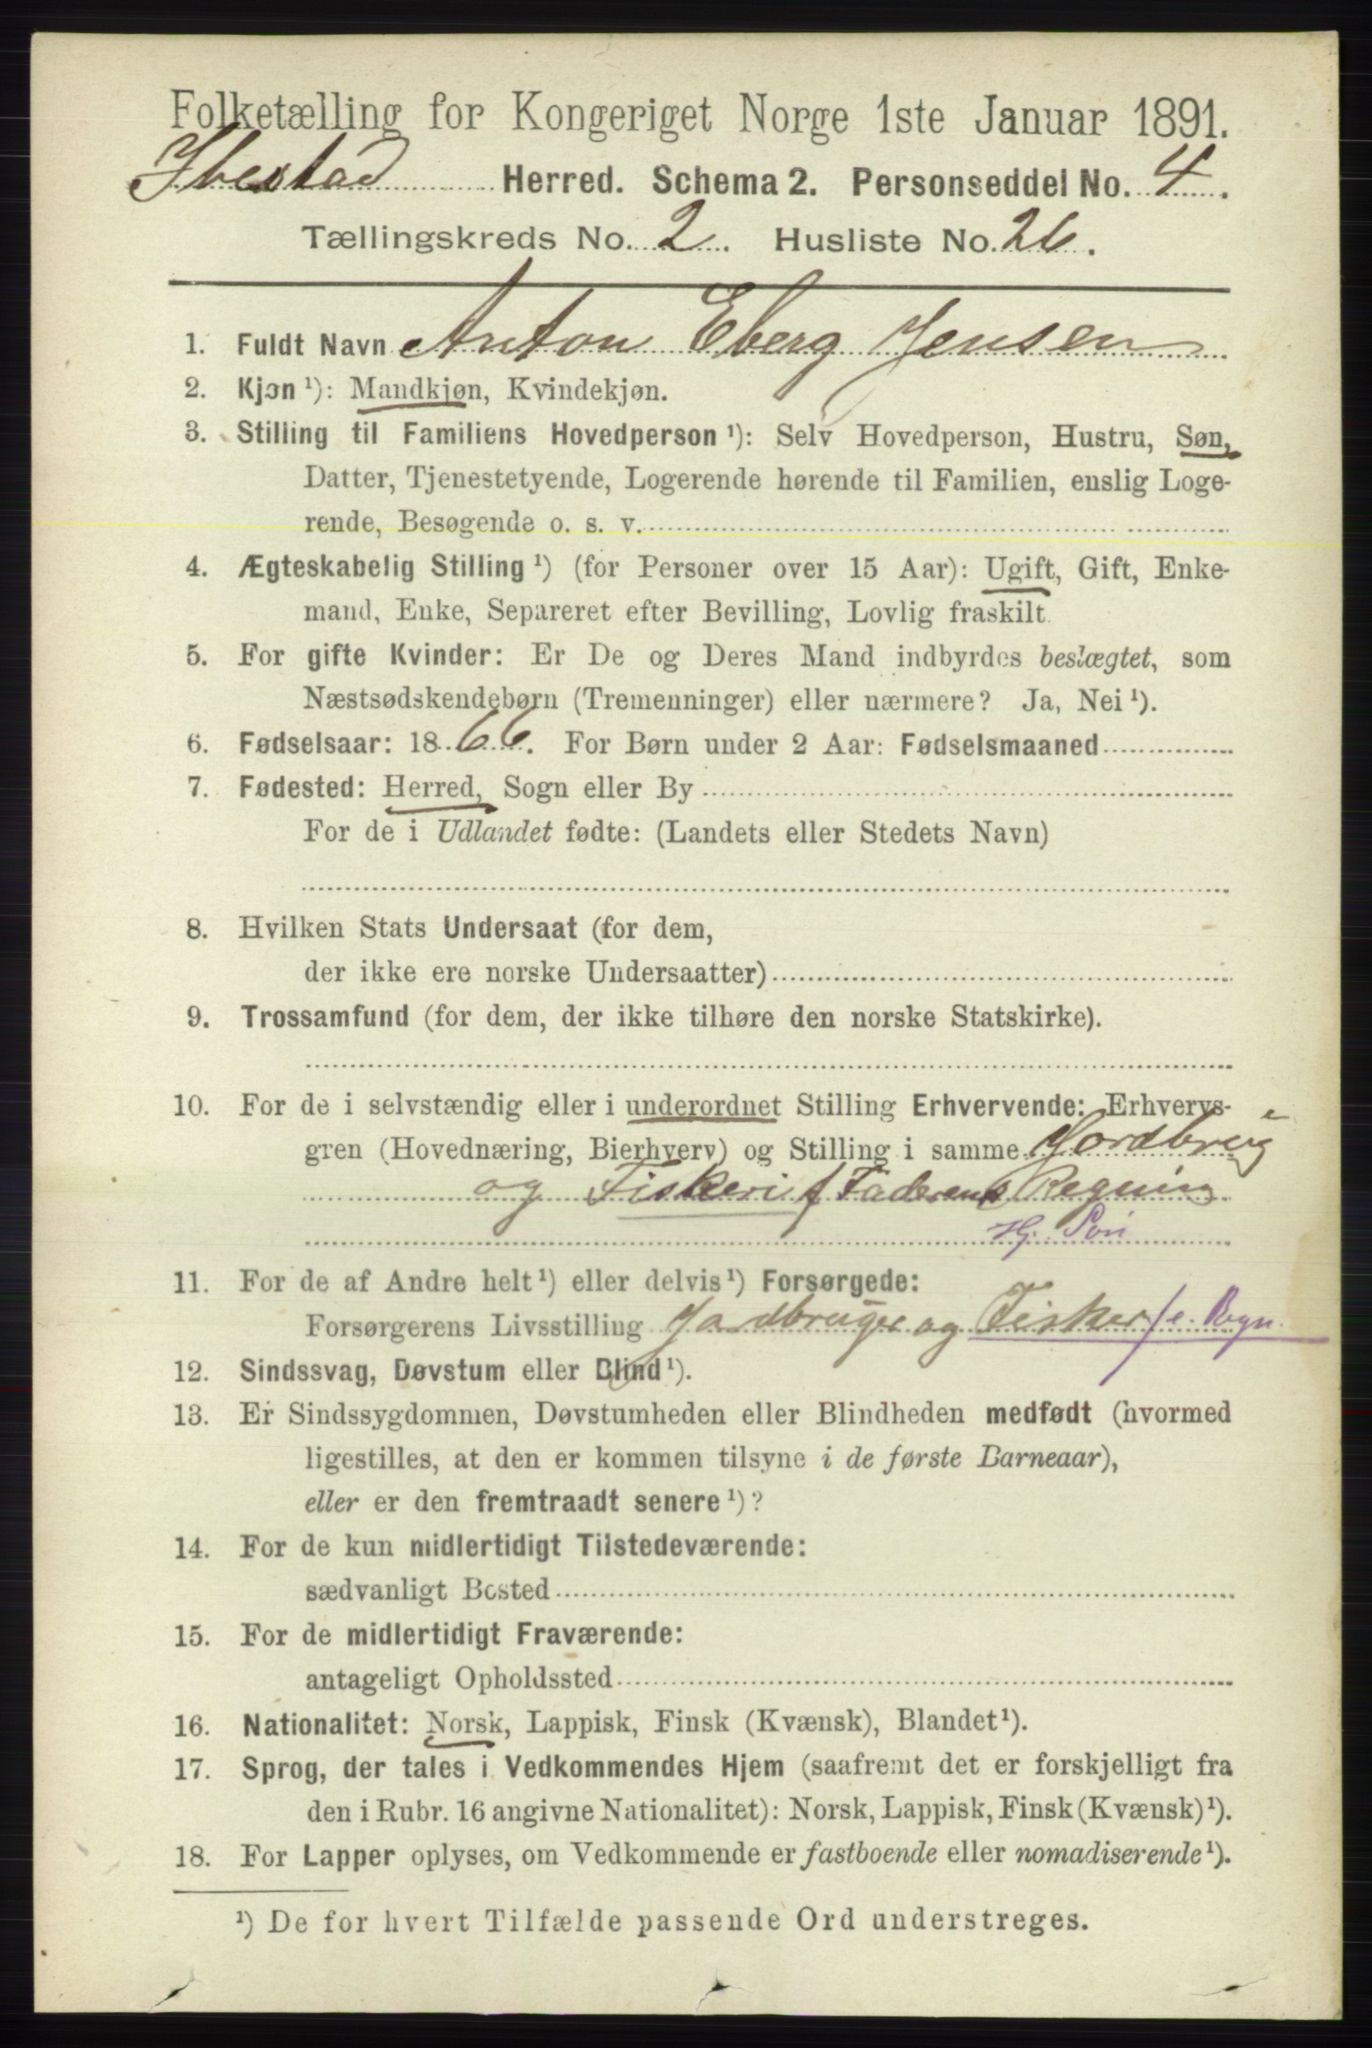 Folketælling for Kongeriget Norge 1ste Januar 1891.
Ibestad Herred. Schema 2. Personseddel No. 4.
Tællingskreds No. 2. Husliste No. 26.
1. Fuldt Navn Anton Eberg Jensen
2. Kjøn ¹): Mandkjøn, Kvindekjøn.
3. Stilling til Familiens Hovedperson ¹): Selv Hovedperson, Hustru, Søn,
Datter, Tjenestetyende, Logerende hørende til Familien, enslig Loge-
rende, Besøgende o. s. v.
4. Ægteskabelig Stilling ¹) (for Personer over 15 Aar): Ugift, Gift, Enke-
mand, Enke, Separeret efter Bevilling, Lovlig fraskilt.
5. For gifte Kvinder: Er De og Deres Mand indbyrdes beslægtet, som
Næstsødskendebørn (Tremenninger) eller nærmere? Ja, Nei ¹).
6. Fødselsaar: 1866. For Børn under 2 Aar: Fødselsmaaned
7. Fødested: Herred, Sogn eller By
For de i Udlandet fødte: (Landets eller Stedets Navn)
8. Hvilken Stats Undersaat (for dem,
der ikke ere norske Undersaatter)
9. Trossamfund (for dem, der ikke tilhøre den norske Statskirke).
10. For de i selvstændig eller i underordnet Stilling Erhvervende: Erhvervs-
gren (Hovednæring, Bierhverv) og Stilling i samme Jordbrug
og Fiskeri f Faderens Regning
Hj. Søn
11. For de af Andre helt ¹) eller delvis ¹) Forsørgede:
Forsørgerens Livsstilling Jordbruger og Fisker f. e. Regn.
12. Sindssvag, Døvstum eller Blind ¹).
13. Er Sindssygdommen, Døvstumheden eller Blindheden medfødt (hvormed
ligestilles, at den er kommen tilsyne i de første Barneaar),
eller er den fremtraadt senere ¹)?
14. For de kun midlertidigt Tilstedeværende:
sædvanligt Bosted
15. For de midlertidigt Fraværende:
antageligt Opholdssted
16. Nationalitet: Norsk, Lappisk, Finsk (Kvænsk), Blandet ¹).
17. Sprog, der tales i Vedkommendes Hjem (saafremt det er forskjelligt fra
den i Rubr. 16 angivne Nationalitet): Norsk, Lappisk, Finsk (Kvænsk) ¹).
18. For Lapper oplyses, om Vedkommende er fastboende eller nomadiserende ¹).
¹) De for hvert Tilfælde passende Ord understreges.